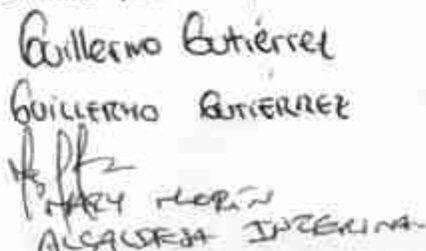 Guillermo Gutiérrez
GUILLERMO GUTIERREZ
MARY
ALCALDESA INTERINA